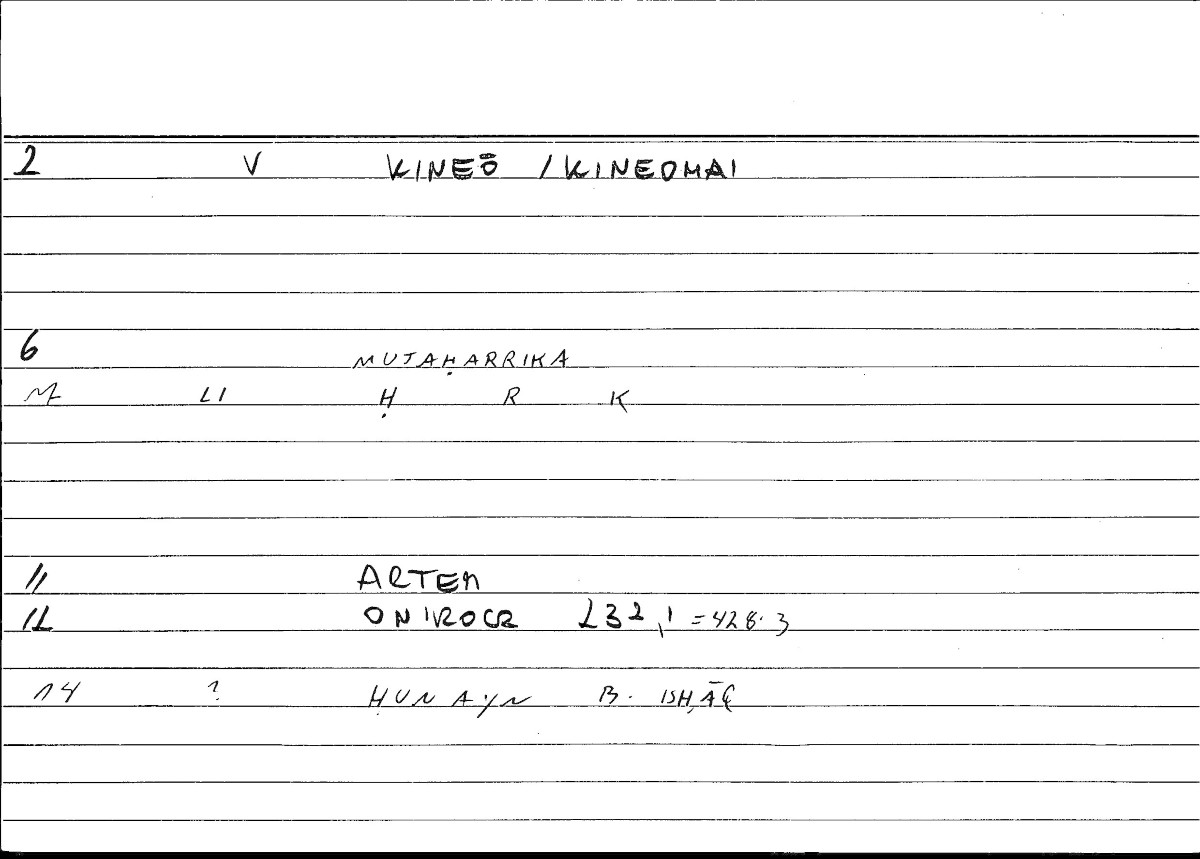 2 V KINEŌ / KINEOMAI
6 MUTAḤARRIKA
LI Ḥ R K
11 ARTEM
12 ONIROCR 232,1 = 428.3
14 ? ḤUNAYN B. ISḤĀQ